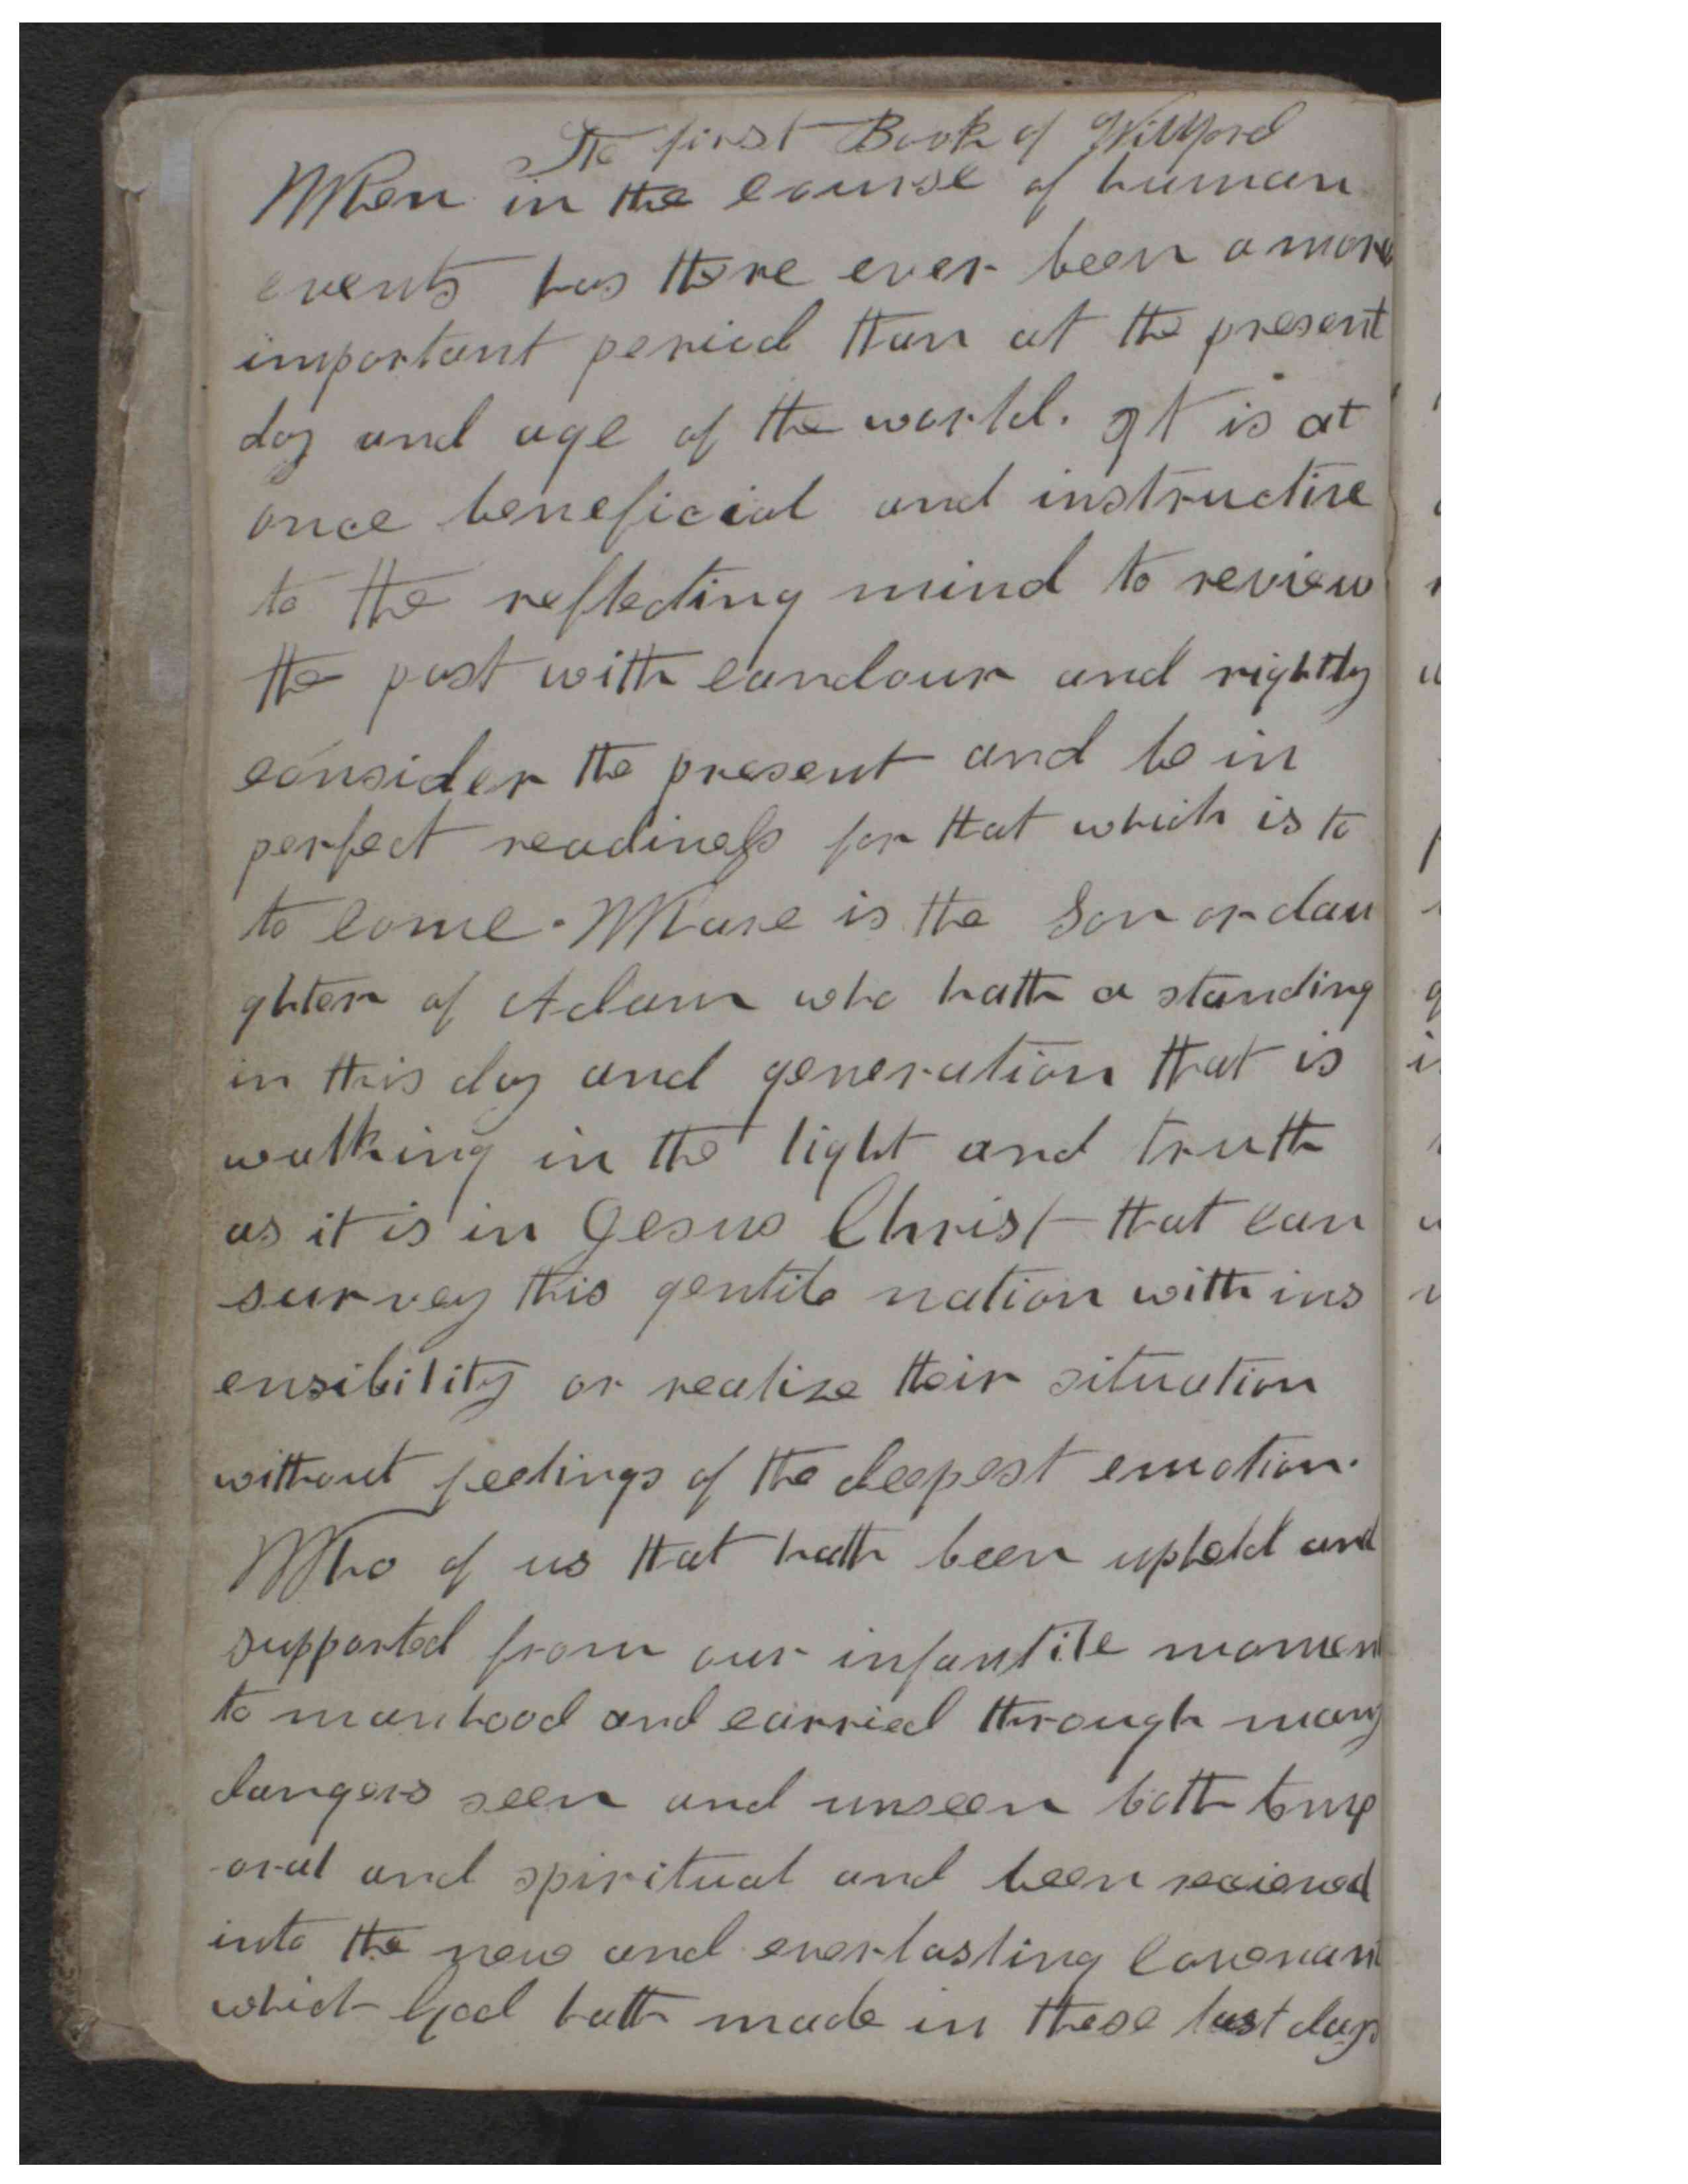 The first Book of Willford
When in the course of human
events has there ever been a more
important period than at the present
day and age of the world. It is at
once beneficial and instructive
to the reflecting mind to review
the past with candour and rightly
consider the present and be in
perfect readiness for that which is to
to come. Whare is the Son or dau
ghter of Adam who hath a standing
in this day and generation that is
walking in the light and truth
as it is in Jesus Christ that can
survey this gentile nation with ins
ensibility or realize their situation
without feelings of the deepest emotion.
Who of us that hath been upheld and
supported from our infantile momen
to manhood and carried through many
dangers seen and unseen both temp
-oral and spiritual and been recieved
into the new and everlasting Covenant
which God hath made in these last days